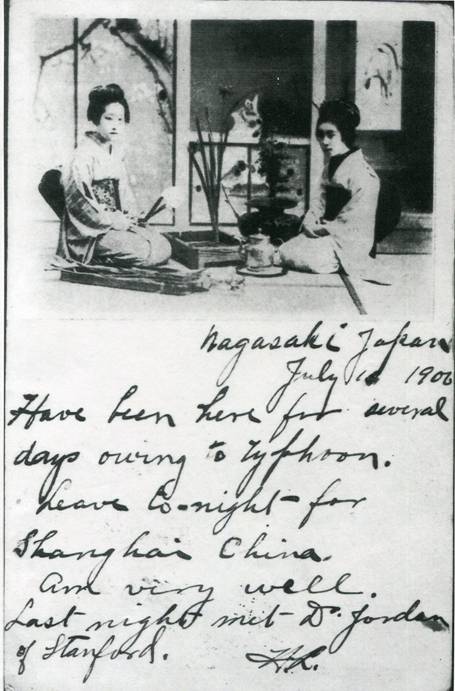 Nagasaki Japan
July 1900
Have been here for several
days owing to Typhoon.
Leave to-night for
Shanghai China.
Am very well.
Last night met Dr. Jordan
of Stanford.